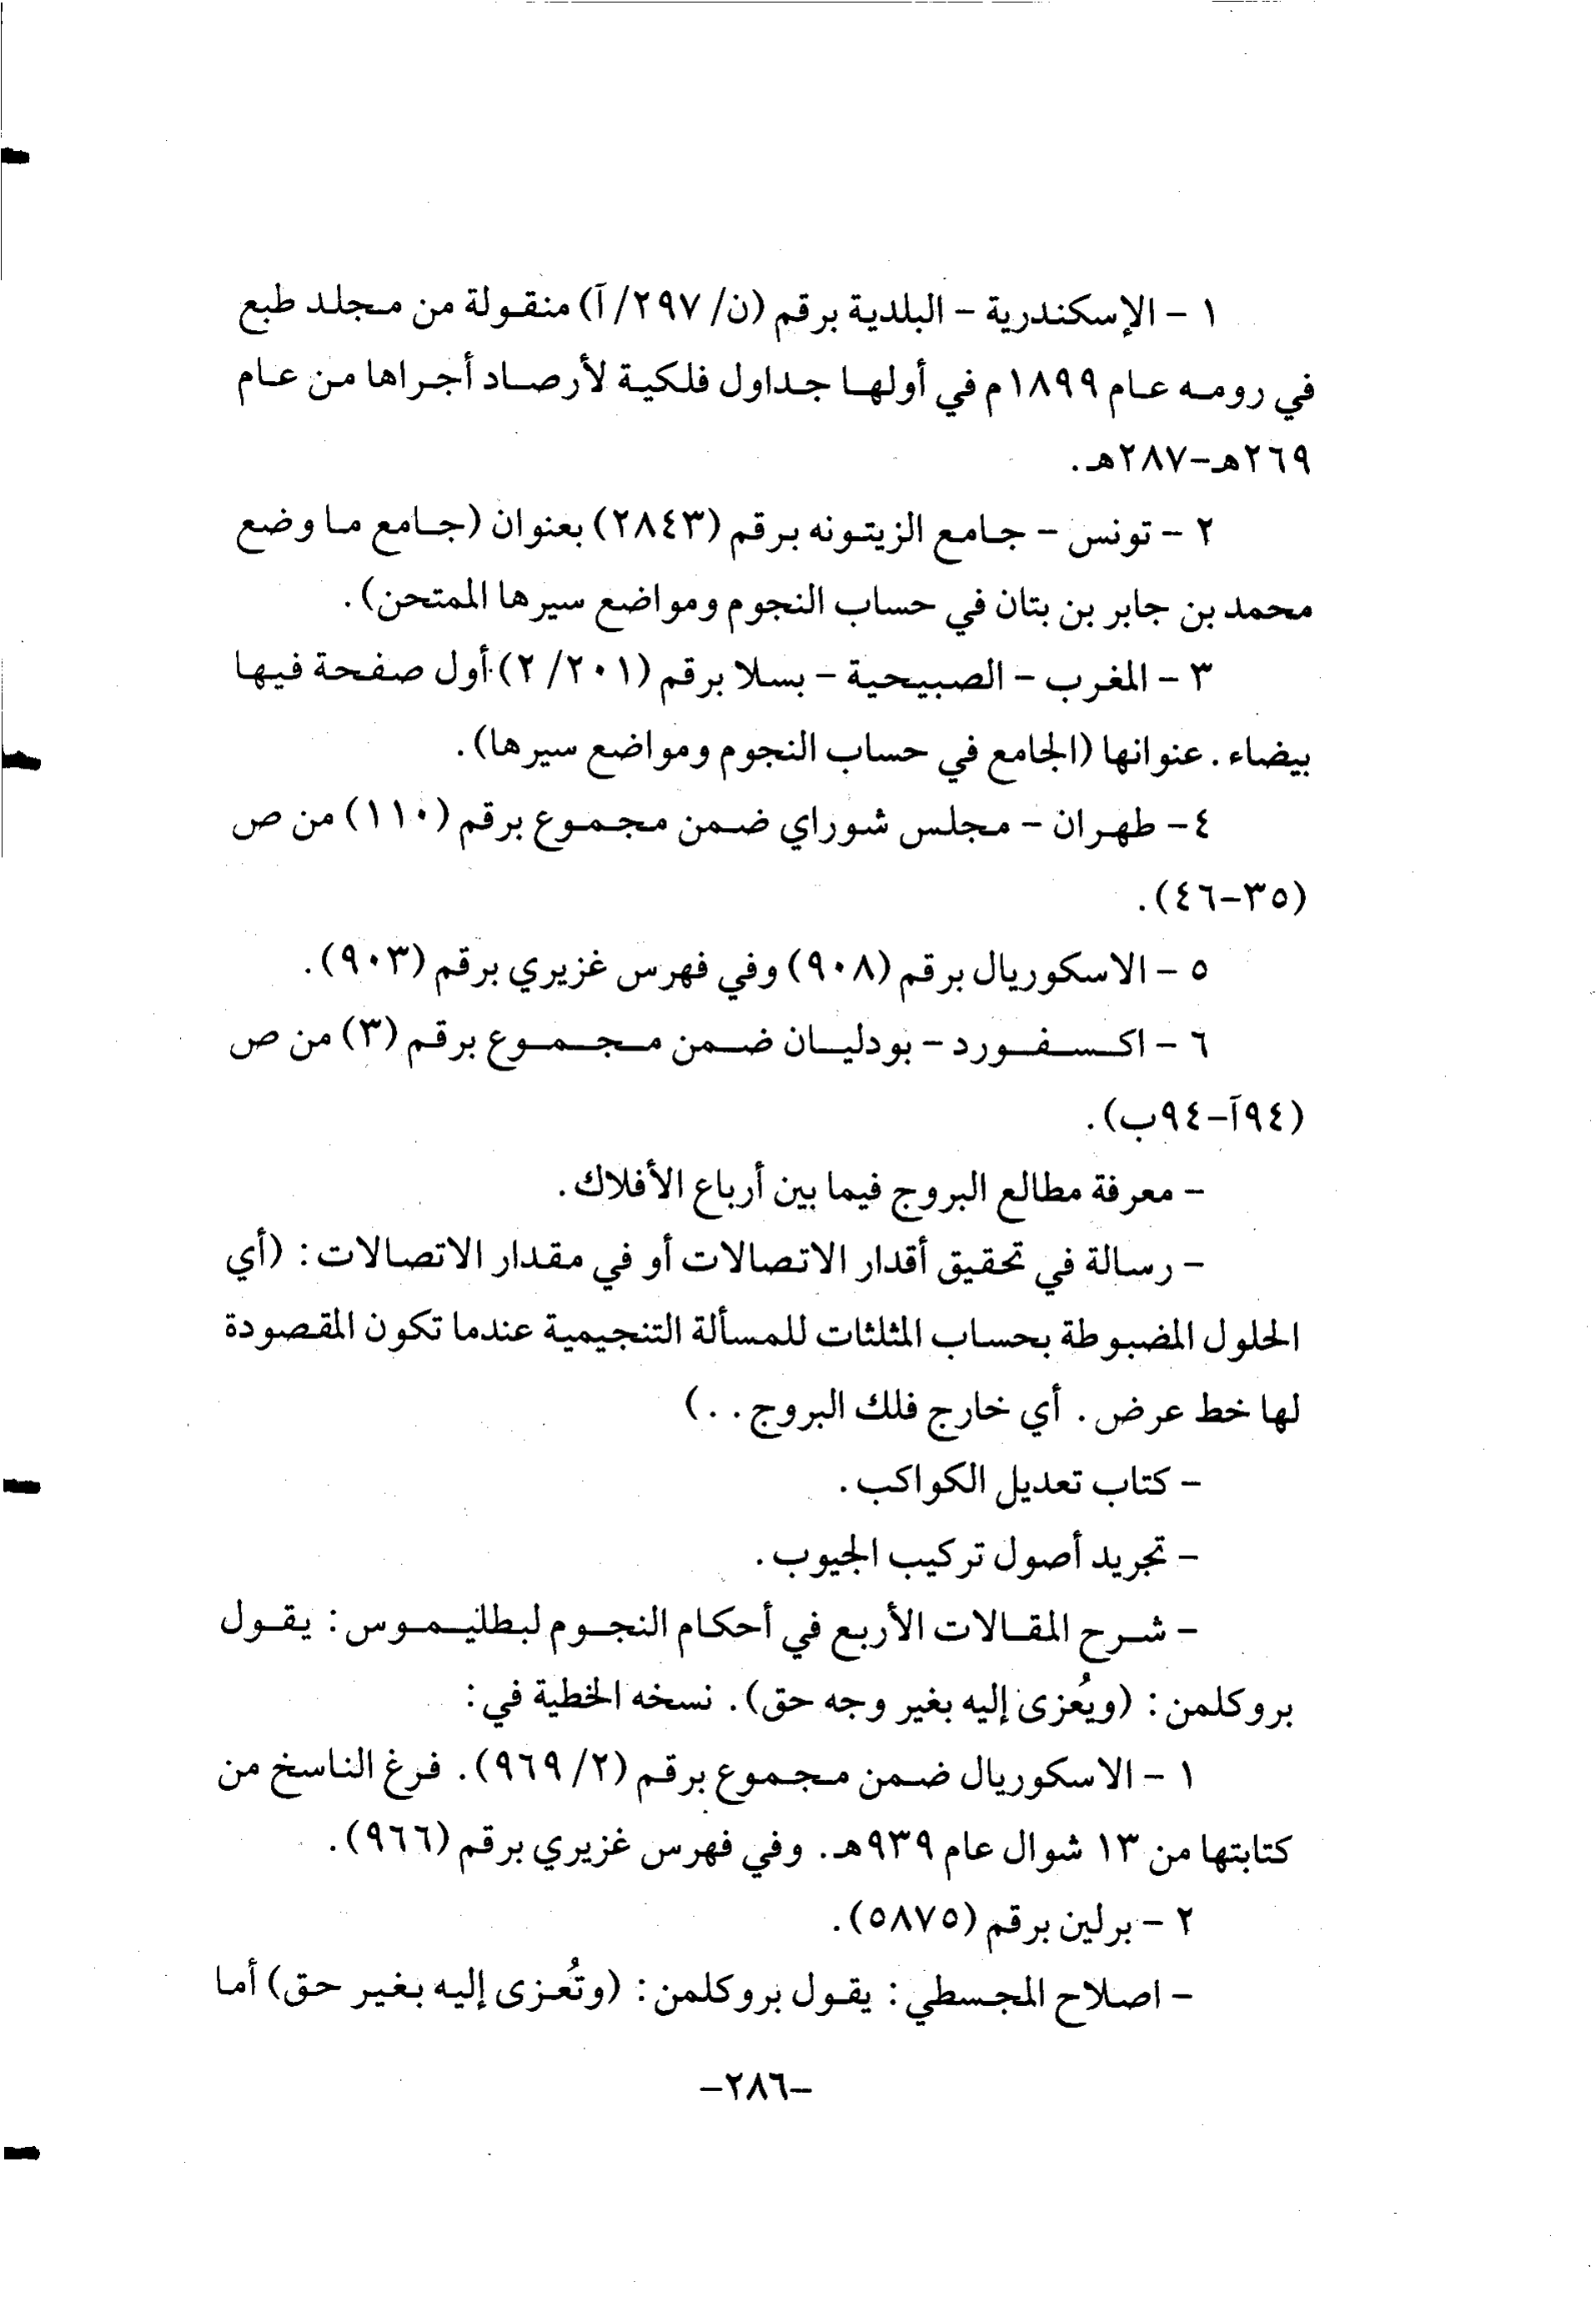 ١ - الإسكندرية - البلدية برقم (ن/ ٢٩٧/آ) منقولة من مجلد طبع
في رومه عام ١٨٩٩م في أولها جداول فلكية لأرصاد أجراها من عام
٢٦٩هـ-٢٨٧هـ.
٢ - تونس - جامع الزيتونه برقم (٢٨٤٣) بعنوان (جامع ما وضع
محمد بن جابر بن بتان في حساب النجوم ومواضع سيرها الممتحن).
٣ - المغرب - الصبيحية - بسلا برقم (٢/٢٠١) أول صفحة فيها
بيضاء. عنوانها (الجامع في حساب النجوم ومواضع سيرها).
٤- طهران - مجلس شوراي ضمن مجموع برقم (١١٠) من ص
(٣٥-٤٦).
٥ - الاسكوريال برقم (٩٠٨) وفي فهرس غزيري برقم (٩٠٣).
٦ - اكسفورد - بودليان ضمن مجموع برقم (٣) من ص
(٩٤آ-٩٤ب).
- معرفة مطالع البروج فيما بين أرباع الأفلاك.
- رسالة في تحقيق أقدار الاتصالات أو في مقدار الاتصالات: (أي
الحلول المضبوطة بحساب المثلثات للمسألة التنجيمية عندما تكون المقصودة
لها خط عرض. أي خارج فلك البروج..)
- كتاب تعديل الكواكب.
- تجريد أصول تركيب الجيوب.
- شرح المقالات الأربع في أحكام النجوم لبطليموس: يقول
بروكلمن: (ويُعزى إليه بغير وجه حق). نسخه الخطية في:
١ - الاسكوريال ضمن مجموع برقم (٩٦٩/٢). فرغ الناسخ من
كتابتها من ١٣ شوال عام ٩٣٩هـ. وفي فهرس غزيري برقم (٩٦٦).
٢ - برلين برقم (٥٨٧٥).
- اصلاح المجسطي: يقول بروكلمن: (وتُعزى إليه بغير حق) أما
-٢٨٦-